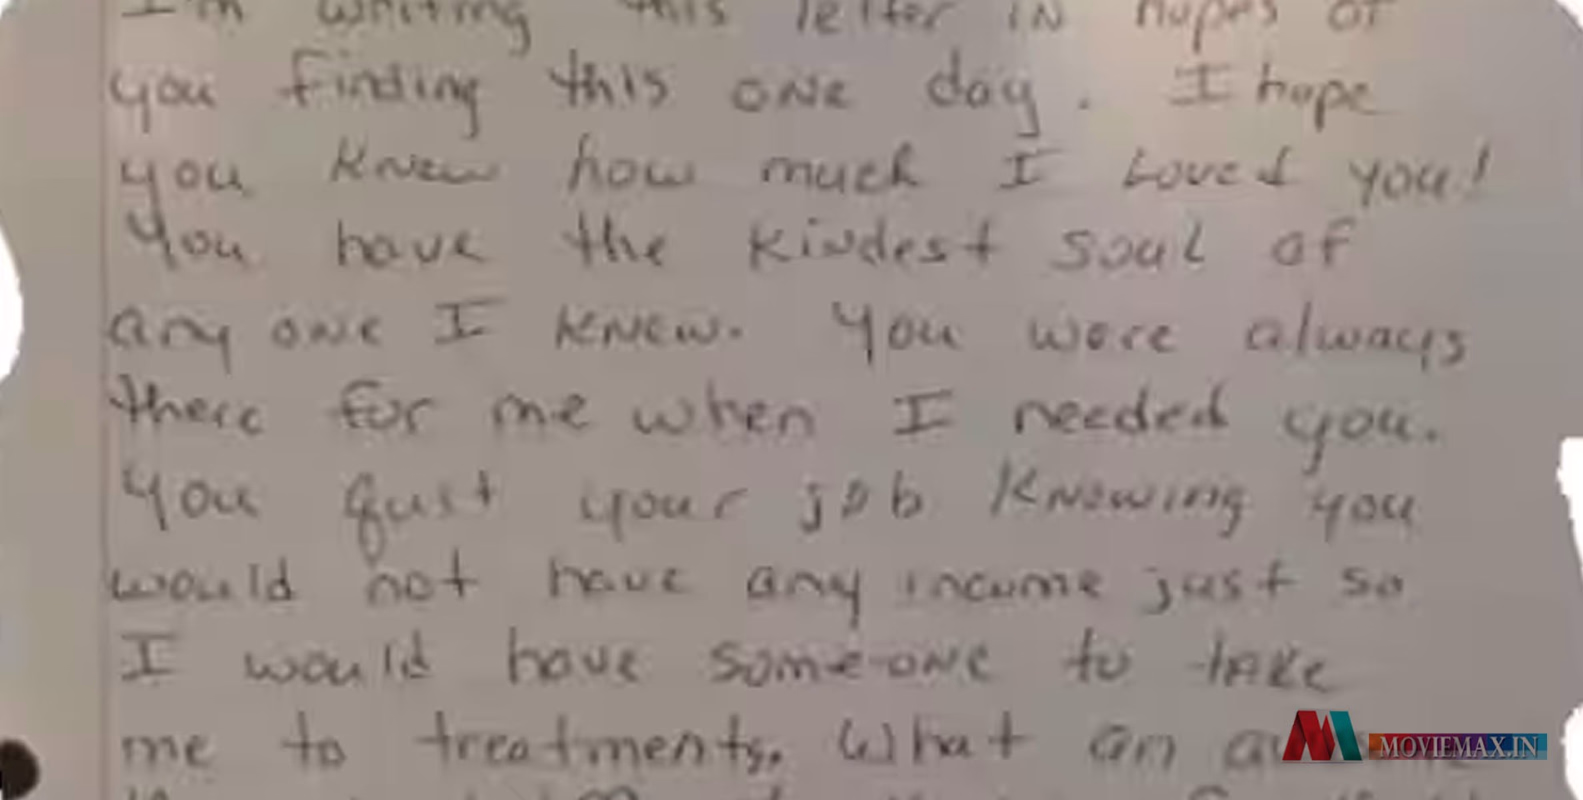 I'm writing this letter IN hopes of
you finding this ONe day. I hope
you KNew how much I Loved you!
You have the KiNdest soul of
any oNe I KNEW. You were always
there for me when I needed you.
You quit your job KNowing you
would not have any income just so
I would have some-oNe to take
me to treatments. What an
MOVIEMAX.IN